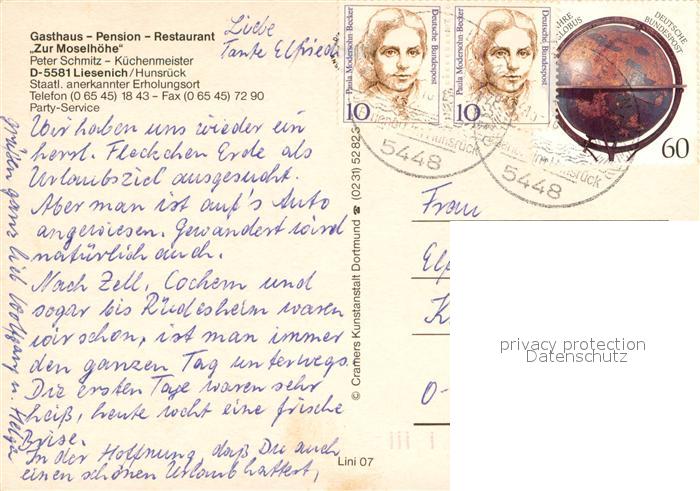 Gasthaus – Pension – Restaurant
„Zur Moselhöhe"
Peter Schmitz – Küchenmeister
D-5581 Liesenich/Hunsrück
Staatl. anerkannter Erholungsort
Telefon (0 65 45) 18 43 – Fax (0 65 45) 72 90
Party-Service
Liebe
Tante Elfriede
Wir haben uns wieder ein
herrl. Fleckchen Erde als
Urlaubsziel ausgesucht.
Aber man ist auf's Auto
angewiesen. Gewandert wird
natürlich auch.
Nach Zell, Cochem und
sogar bis Rüdesheim waren
wir schon, ist man immer
den ganzen Tag unterwegs.
Die ersten Tage waren sehr
heiß, heute weht eine frische
Brise.
In der Hoffnung, daß Du auch
einen schönen Urlaub hattest,
grüßen ganz lieb Wolfgang u. Helga
© Cramers Kunstanstalt Dortmund ☎ (0231) 52 82 3
Lini 07
Paula Modersohn-Becker
Deutsche Bundespost
10
Paula Modersohn-Becker
Deutsche Bundespost
10
JAHRE
GLOBUS
DEUTSCHE
BUNDESPOST
60
5448
Hunsrück
5448
Frau
O-
privacy protection
Datenschutz